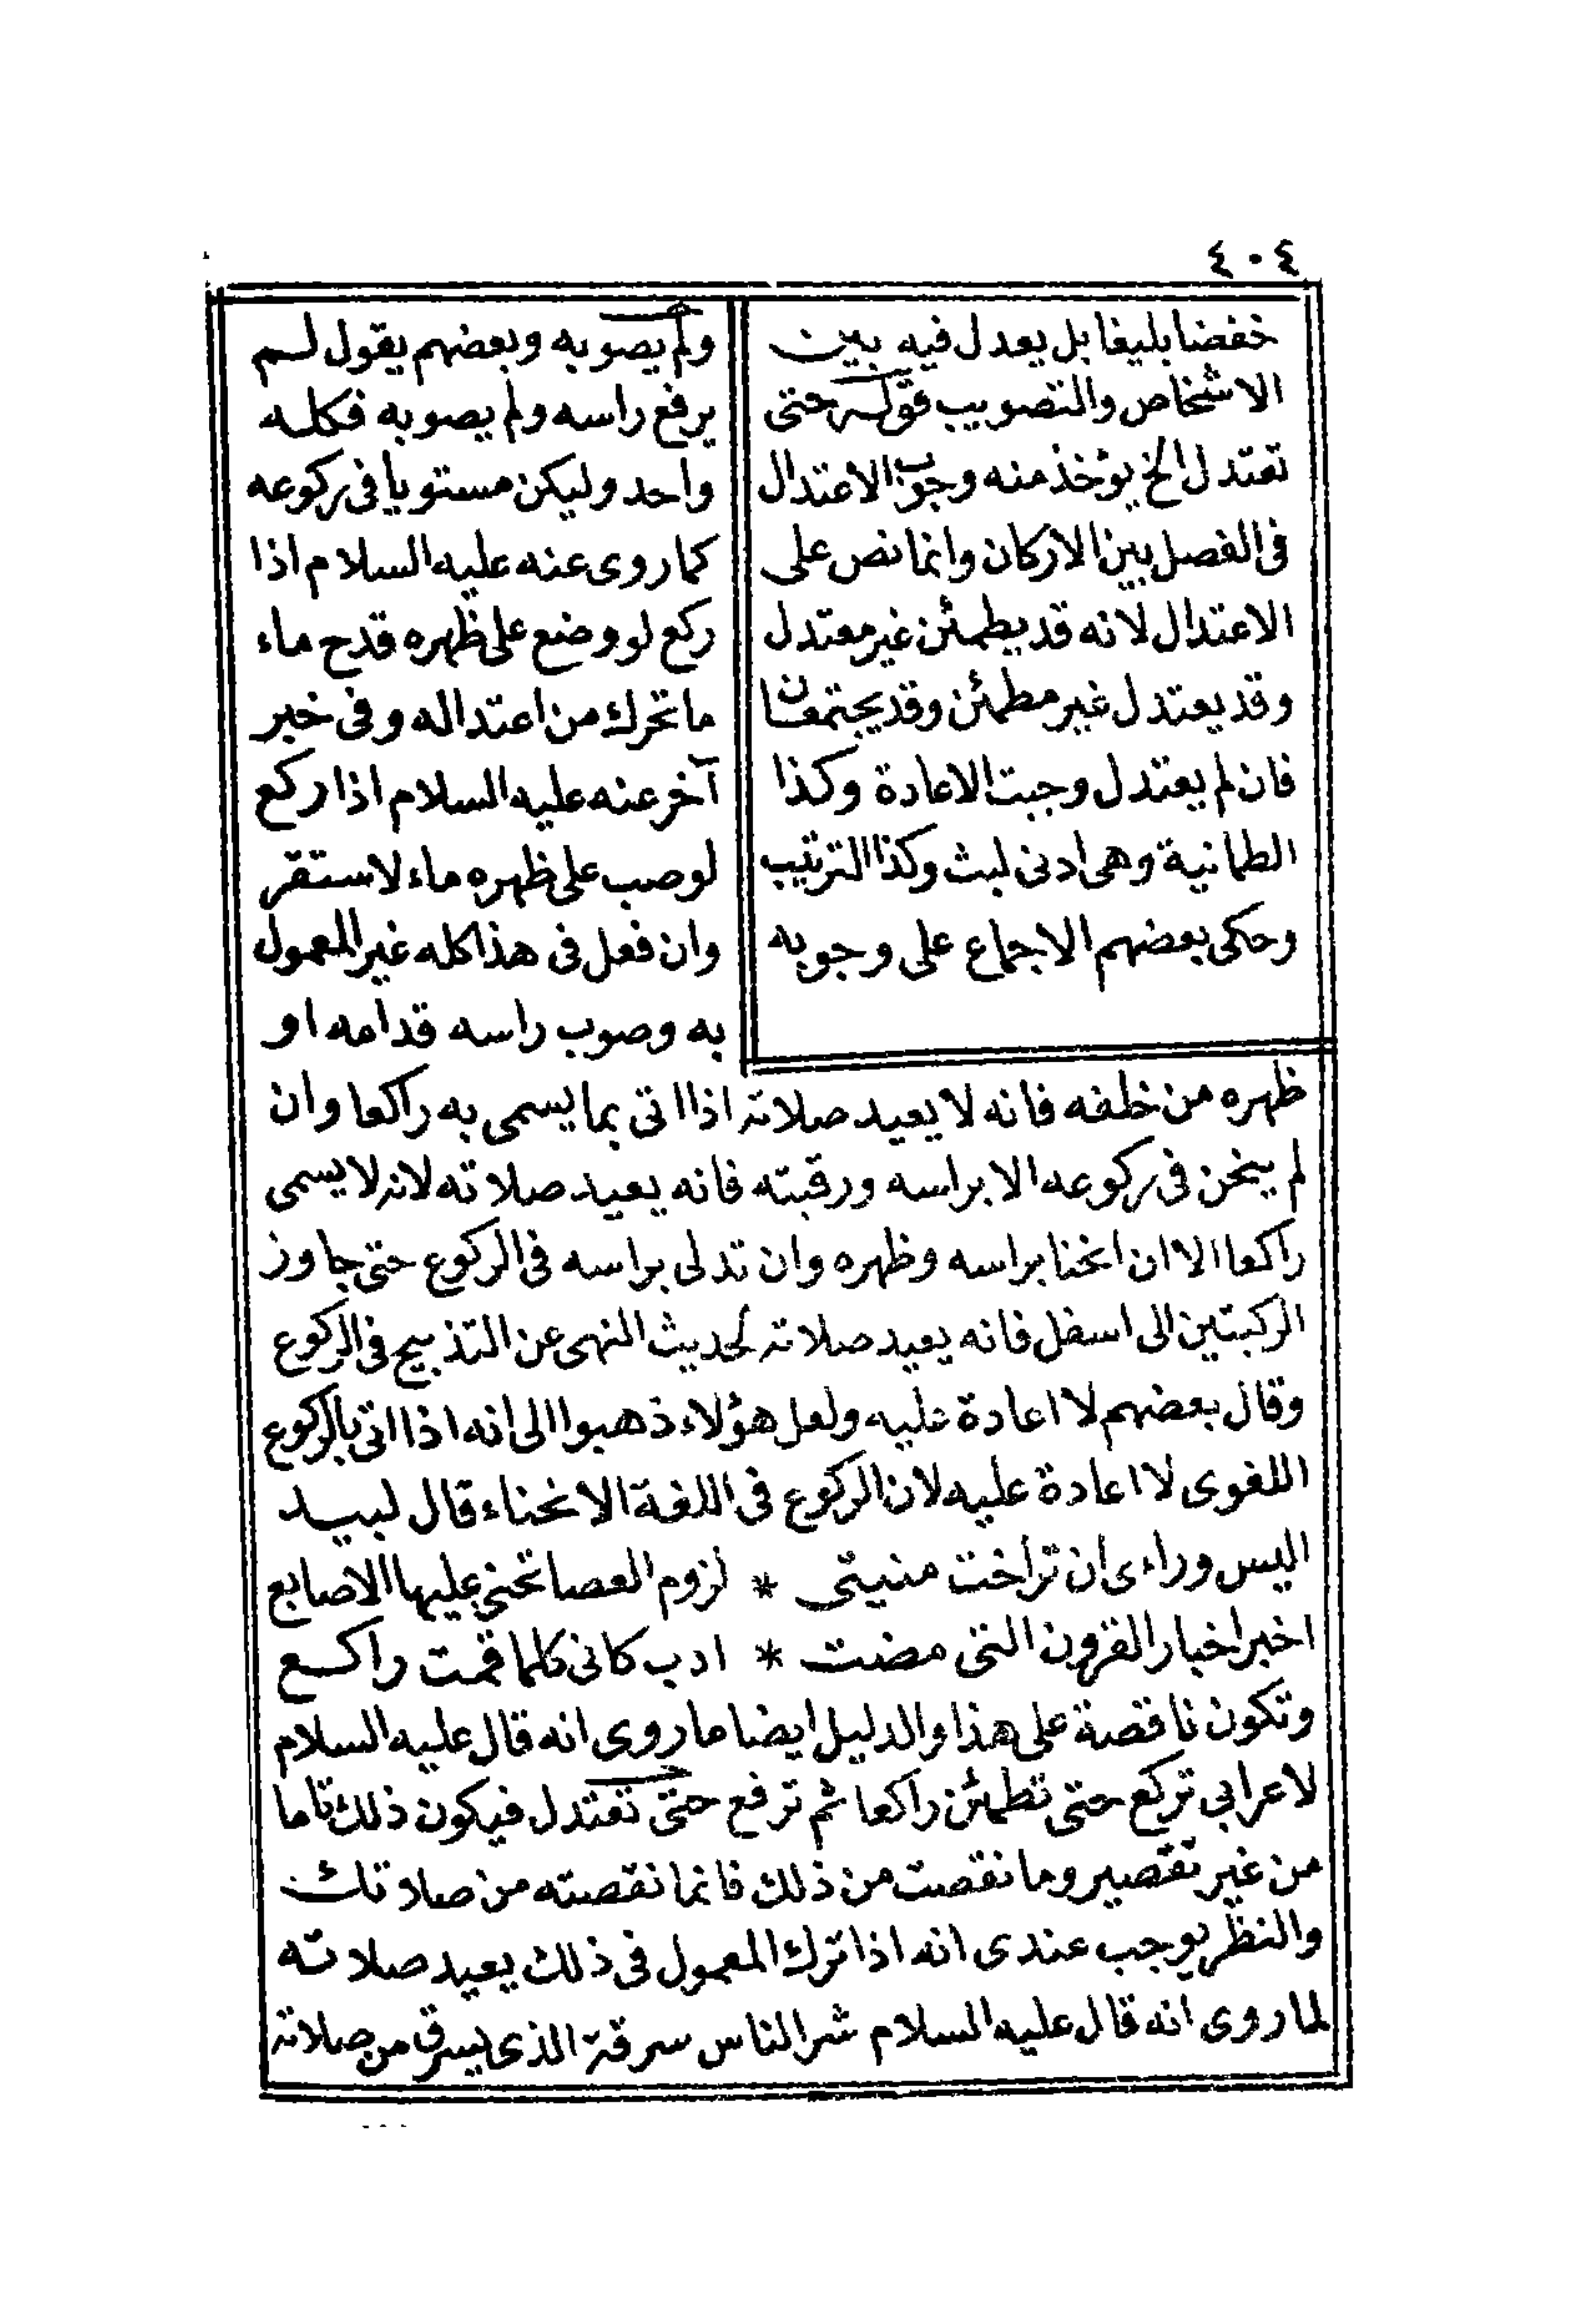 ٤٠٤
خفضا بليغا بل يعدل فيه بين
الاشخاص والتصويب قوله حتى
تعتدل الخ يؤخذ منه وجوب الاعتدال
فى الفصل بين الاركان وانما نص على
الاعتدال لانه قد يطمئن غير معتدل
وقد يعتدل غير مطمئن وقد يجتمعان
فان لم يعتدل وجبت الاعادة وكذا
الطمانية وهى ادنى لبث وكذا الترتيب
وحكى بعضهم الاجماع على وجوبه
ولم يصوبه وبعضهم يقول لم
يرفع راسه ولم يصوبه فكله
واحد وليكن مستويا فى ركوعه
كما روى عنه عليه السلام اذا
ركع لو وضع على ظهره قدح ماء
ما تحرك من اعتداله وفى خبر
آخر عنه عليه السلام اذا ركع
لوصب على ظهره ماء لاستقر
وان فعل فى هذا كله غير المعمول
به وصوب راسه قدامه او
ظهره من خلفه فانه لا يعيد صلاته اذا اتى بما يسمى به راكعا وان
لم ينحن فى ركوعه الا براسه ورقبته فانه يعيد صلاته لانه لا يسمى
راكعا الا ان انحنا براسه وظهره وان تدلى براسه فى الركوع حتى جاوز
الركبتين الى اسفل فانه يعيد صلاته لحديث النهى عن التذبيح فى الركوع
وقال بعضهم لا اعادة عليه ولعل هؤلاء ذهبوا الى انه اذا اتى بالركوع
اللغوى لا اعادة عليه لان الركوع فى اللغة الانحناء قال لبيد
اليس وراءى ان تراخت منيتى * لزوم العصا تحنى عليها الاصابع
اخبر اخبار القرون التى مضت * ادب كانى كلما قمت راكع
وتكون ناقصة على هذا والدليل ايضا ما روى انه قال عليه السلام
لاعرابي تركع حتى تطمئن راكعا ثم ترفع حتى تعتدل فيكون ذلك تاما
من غير تقصير وما نقصت من ذلك فانما نقصته من صلاتك
والنظر يوجب عندى انه اذا ترك المعمول فى ذلك يعيد صلاته
لما روى انه قال عليه السلام شر الناس سرقة الذى يسرق من صلاته